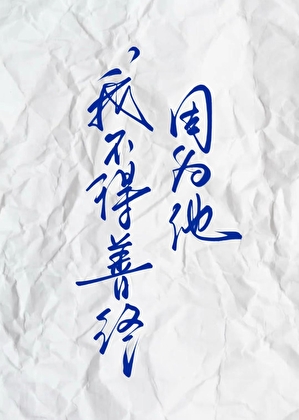 因为他
我不得善终